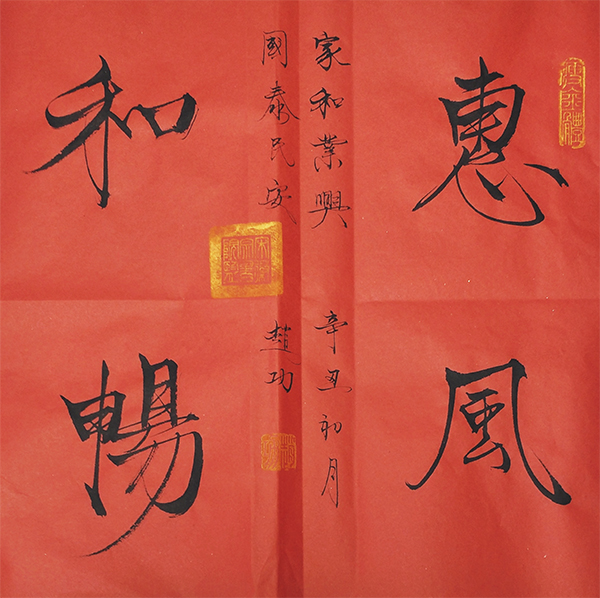 瘦金體
惠風
和暢
家和業興
國泰民安
辛丑初月
趙功